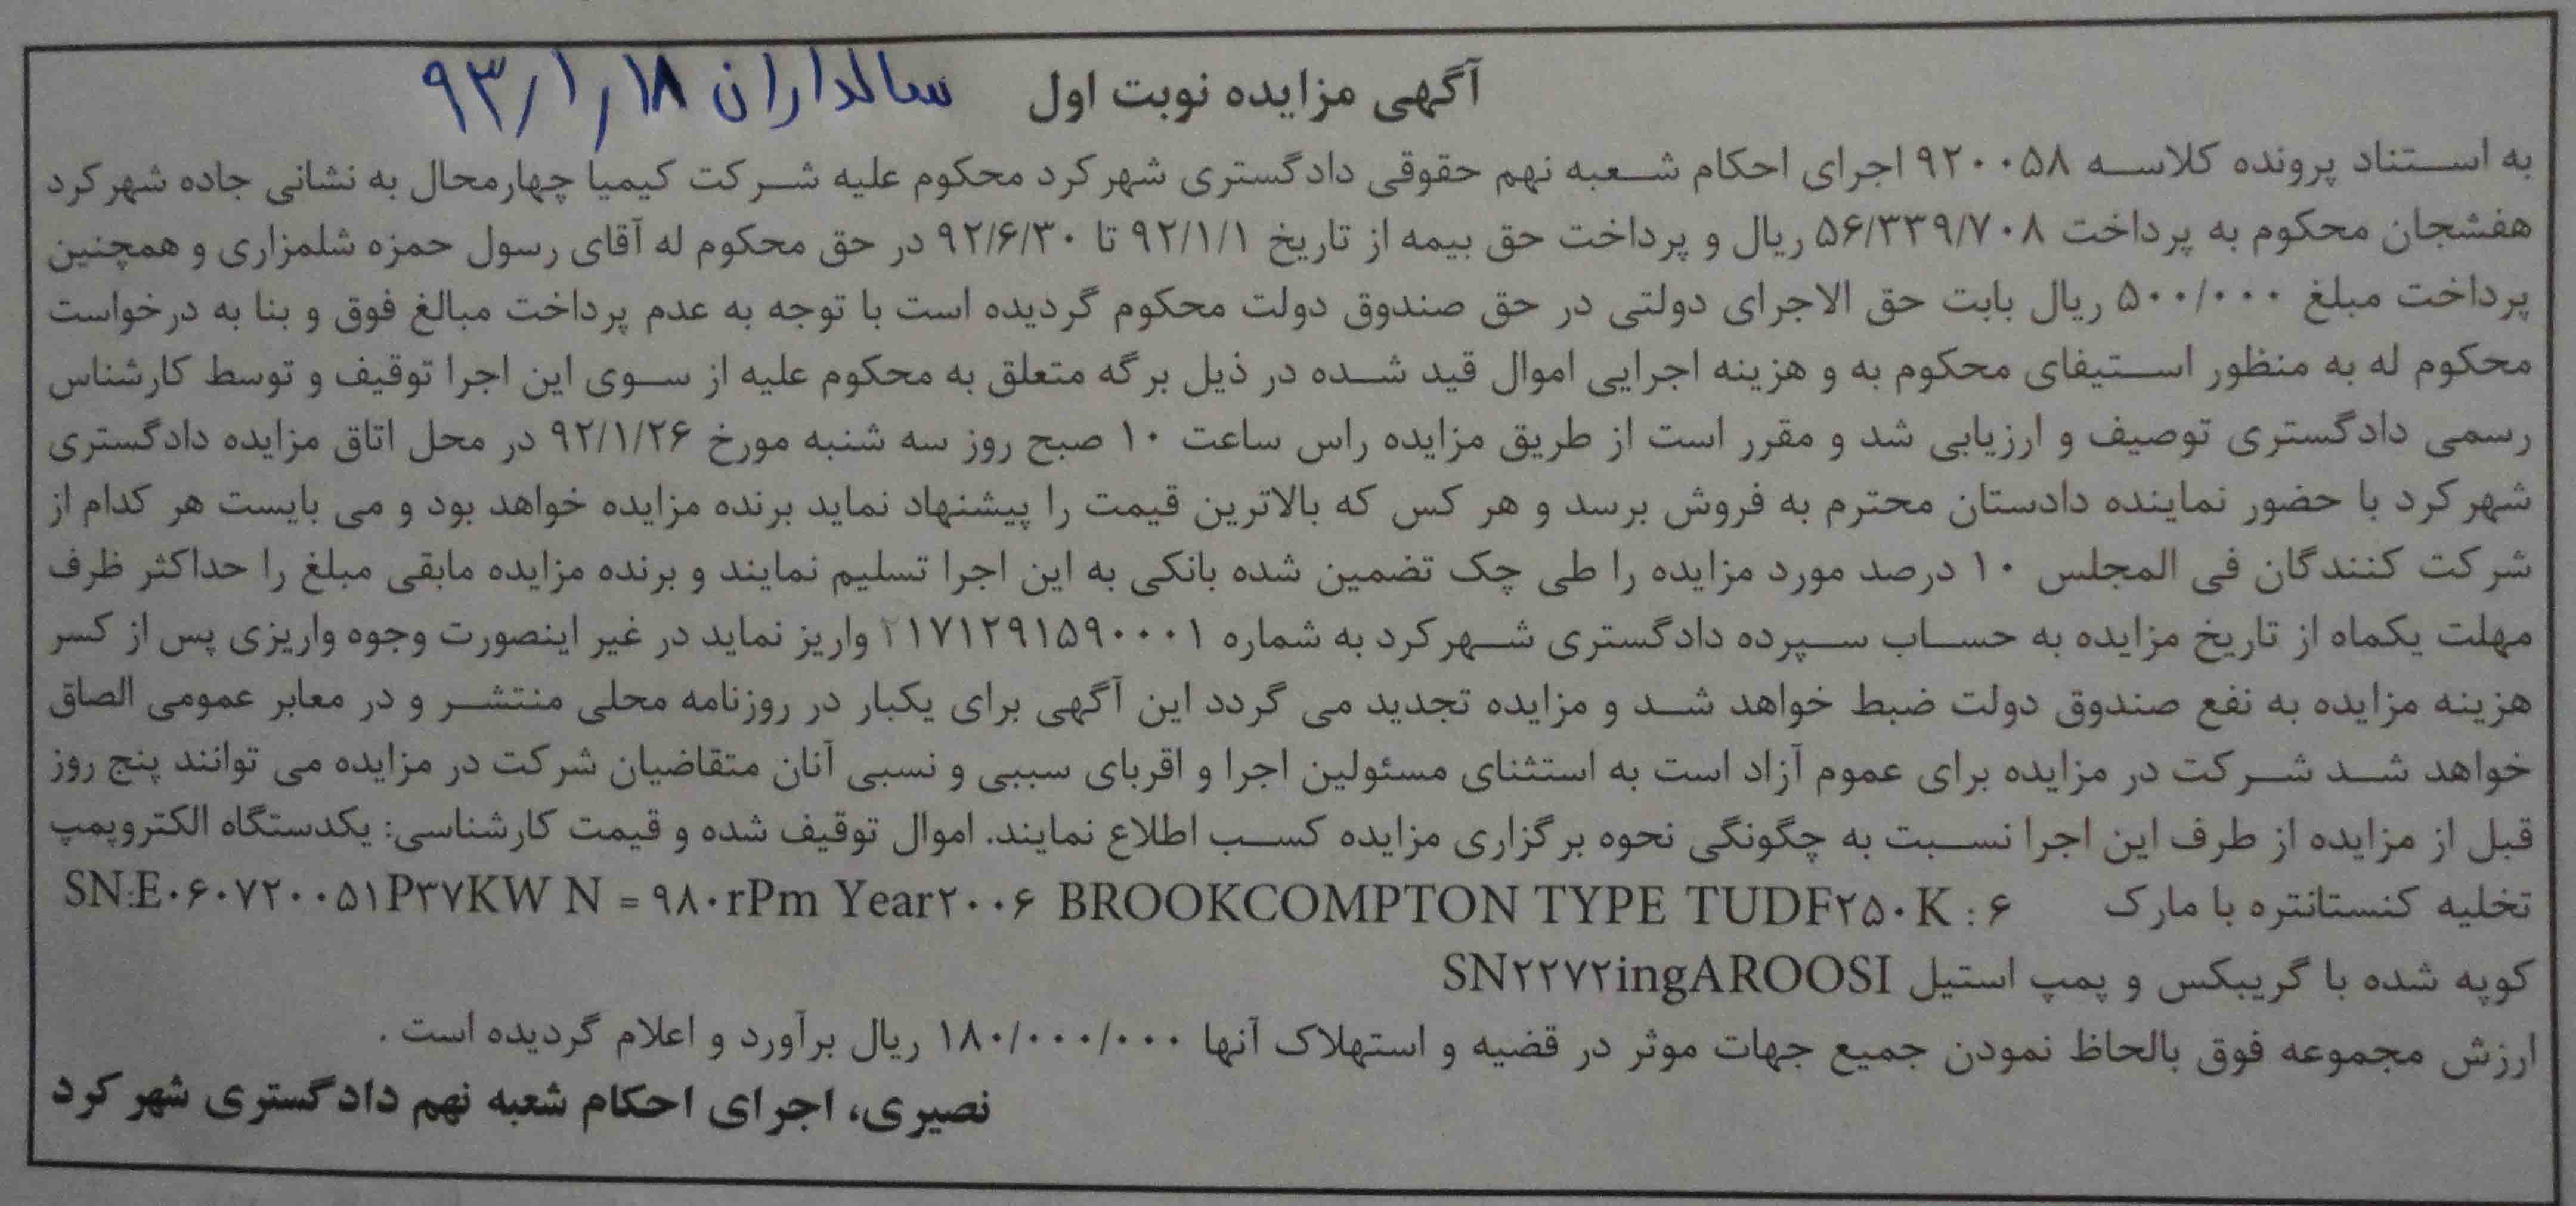 آگهی مزایده نوبت اول سالداران ۹۳/۱/۱۸
به استناد پرونده کلاسه ۹۲۰۰۵۸ اجرای احکام شعبه نهم حقوقی دادگستری شهرکرد محکوم علیه شرکت کیمیا چهارمحال به نشانی جاده شهرکرد
هفشجان محکوم به پرداخت ۵۶/۳۳۹/۷۰۸ ریال و پرداخت حق بیمه از تاریخ ۹۲/۱/۱ تا ۹۲/۶/۳۰ در حق محکوم له آقای رسول حمزه شلمزاری و همچنین
پرداخت مبلغ ۵۰۰/۰۰۰ ریال بابت حق الاجرای دولتی در حق صندوق دولت محکوم گردیده است با توجه به عدم پرداخت مبالغ فوق و بنا به درخواست
محکوم له به منظور استیفای محکوم به و هزینه اجرایی اموال قید شده در ذیل برگه متعلق به محکوم علیه از سوی این اجرا توقیف و توسط کارشناس
رسمی دادگستری توصیف و ارزیابی شد و مقرر است از طریق مزایده راس ساعت ۱۰ صبح روز سه شنبه مورخ ۹۲/۱/۲۶ در محل اتاق مزایده دادگستری
شهرکرد با حضور نماینده دادستان محترم به فروش برسد و هر کس که بالاترین قیمت را پیشنهاد نماید برنده مزایده خواهد بود و می بایست هر کدام از
شرکت کنندگان فی المجلس ۱۰ درصد مورد مزایده را طی چک تضمین شده بانکی به این اجرا تسلیم نمایند و برنده مزایده مابقی مبلغ را حداکثر ظرف
مهلت یکماه از تاریخ مزایده به حساب سپرده دادگستری شهرکرد به شماره ۲۱۷۱۲۹۱۵۹۰۰۰۱ واریز نماید در غیر اینصورت وجوه واریزی پس از کسر
هزینه مزایده به نفع صندوق دولت ضبط خواهد شد و مزایده تجدید می گردد این آگهی برای یکبار در روزنامه محلی منتشر و در معابر عمومی الصاق
خواهد شد شرکت در مزایده برای عموم آزاد است به استثنای مسئولین اجرا و اقربای سببی و نسبی آنان متقاضیان شرکت در مزایده می توانند پنج روز
قبل از مزایده از طرف این اجرا نسبت به چگونگی نحوه برگزاری مزایده کسب اطلاع نمایند. اموال توقیف شده و قیمت کارشناسی: یکدستگاه الکتروپمپ
تخلیه کنستانتره با مارک SN:E۰۶۰۷۲۰۰۵۱P۳۷KW N = ۹۸۰rPm Year۲۰۰۶ BROOKCOMPTON TYPE TUDF۲۵۰K : ۶
کوپه شده با گریبکس و پمپ استیل SN۲۲۷۲ingAROOSI
ارزش مجموعه فوق بالحاظ نمودن جمیع جهات موثر در قضیه و استهلاک آنها ۱۸۰/۰۰۰/۰۰۰ ریال برآورد و اعلام گردیده است .
نصیری، اجرای احکام شعبه نهم دادگستری شهرکرد